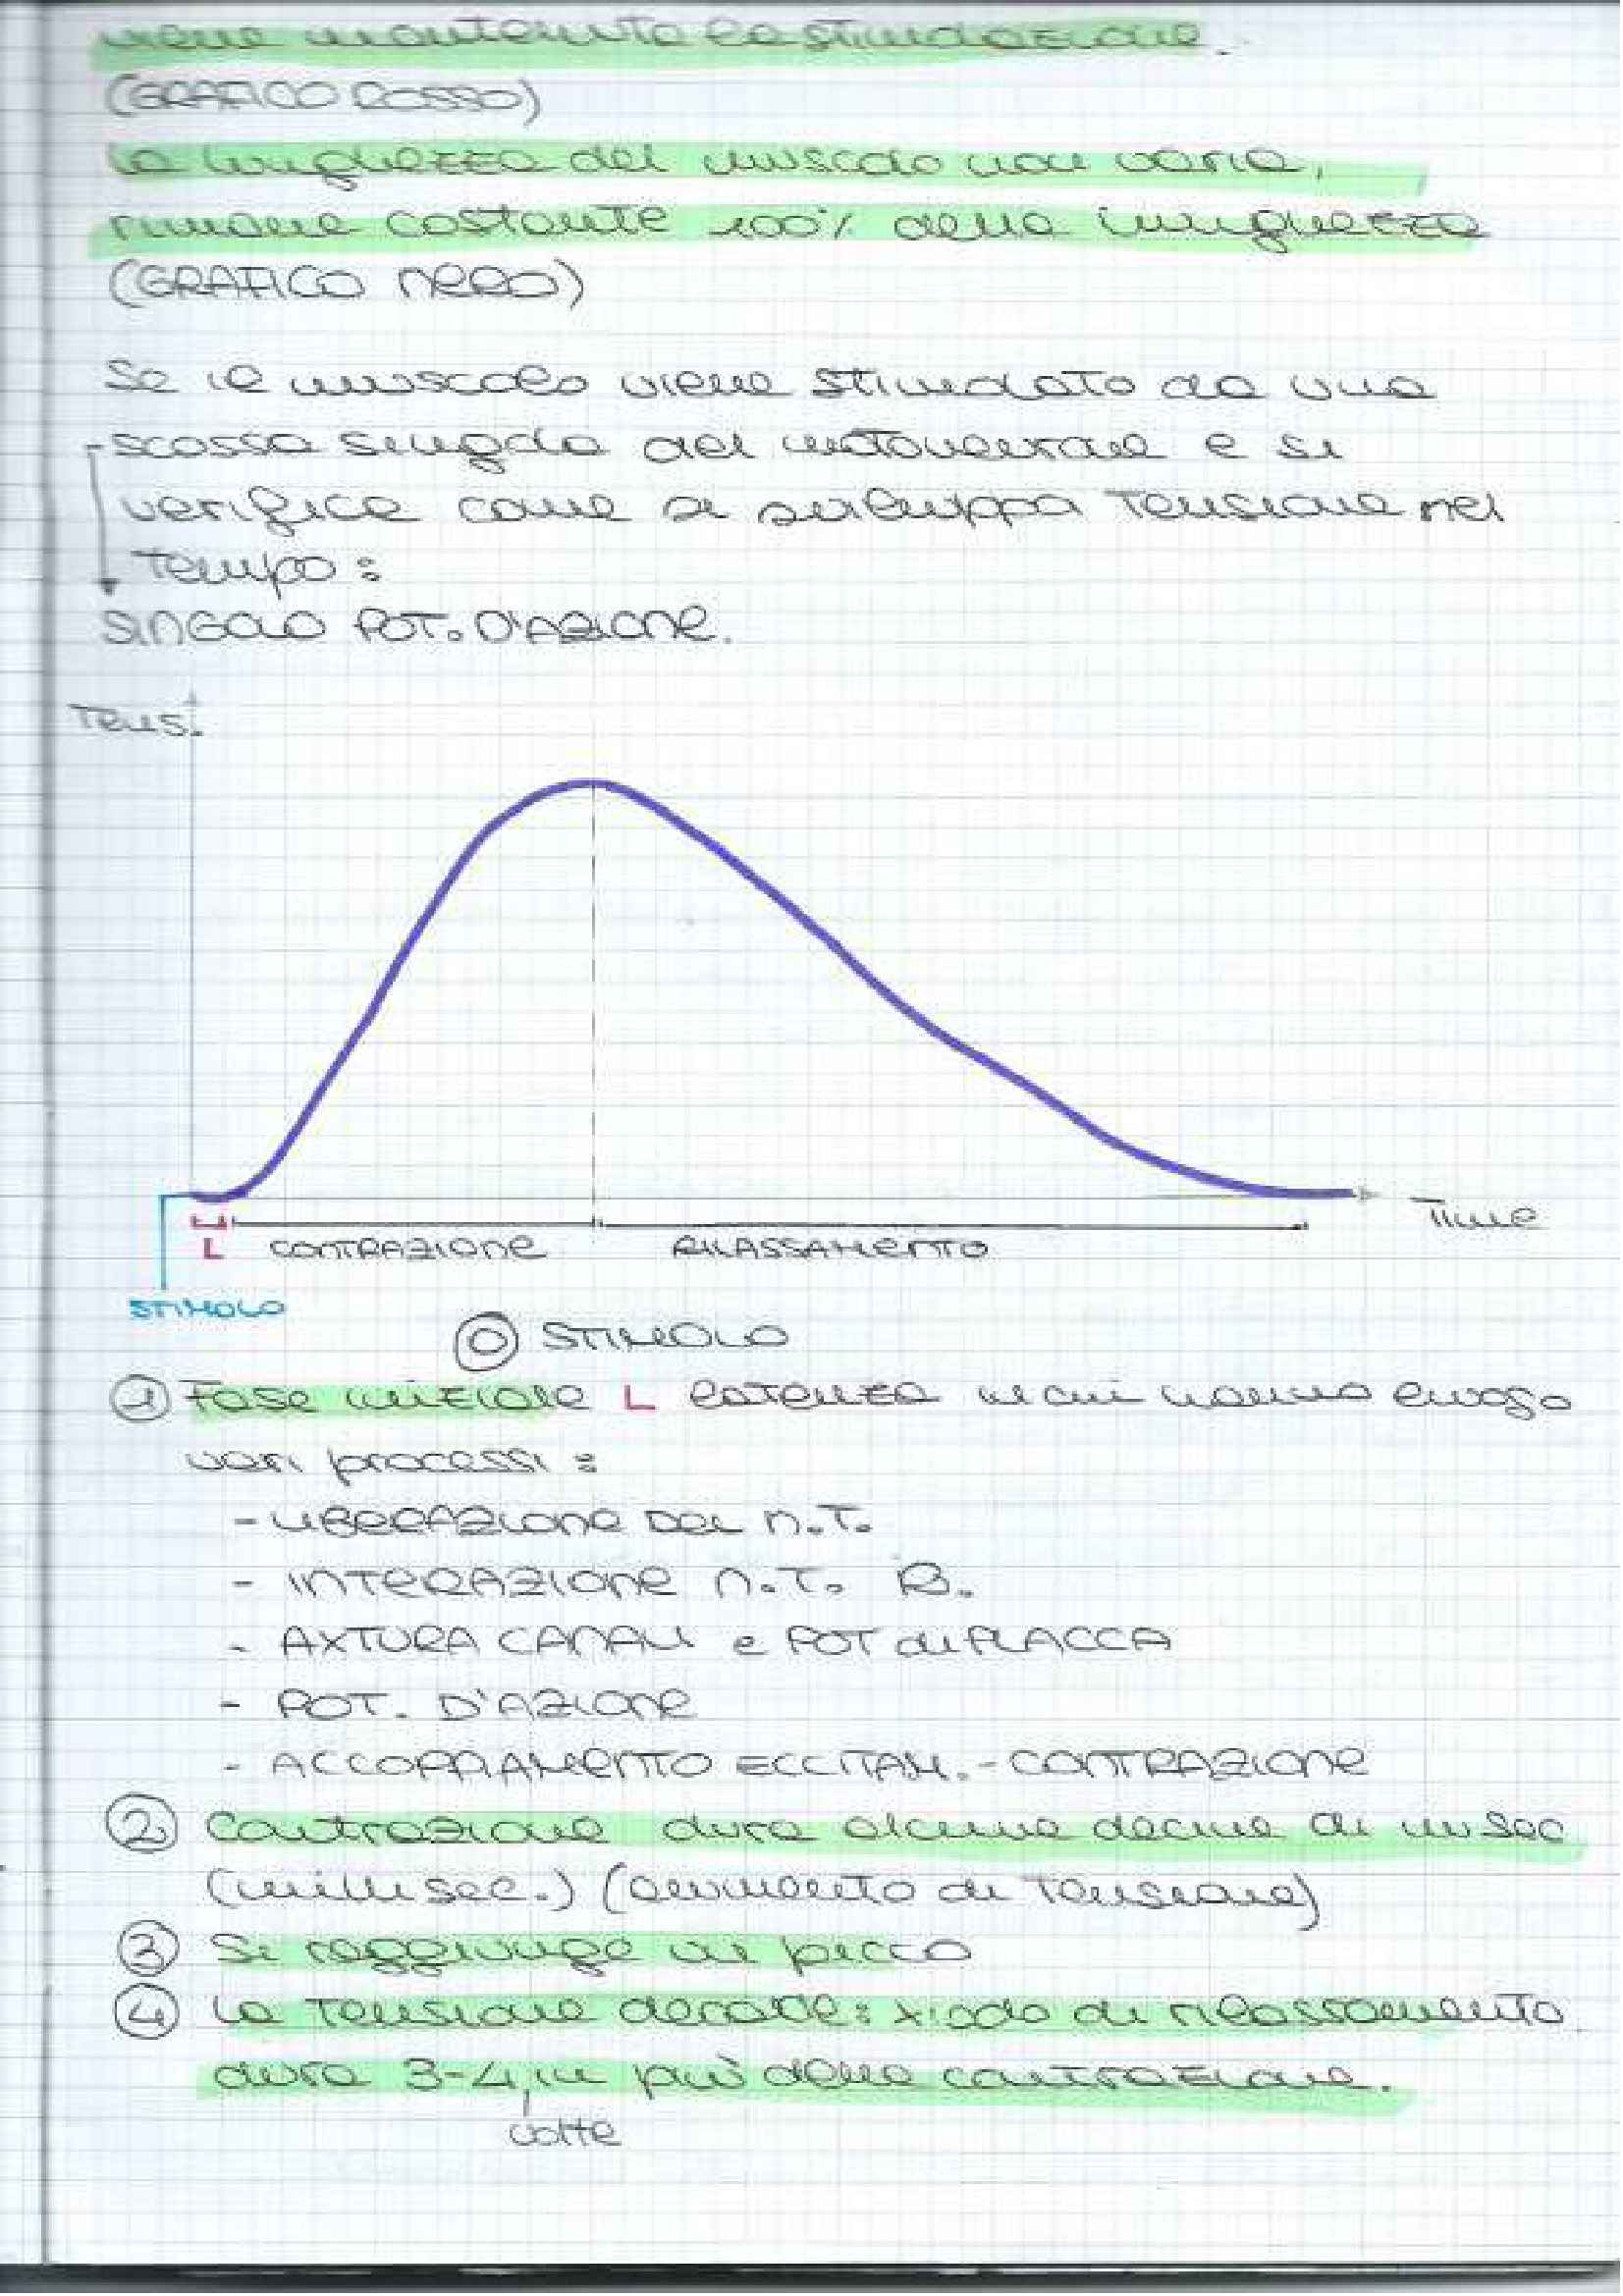 viene mantenuta la stimolazione.
(GRAFICO ROSSO)
La lunghezza del muscolo non varia,
rimane costante 100% della lunghezza
(GRAFICO NERO)
Se il muscolo viene stimolato da una
- scossa singola del motoneurone e si
verifica come si sviluppa tensione nel
tempo:
SINGOLO POT. D'AZIONE.
Tens.
Time
L CONTRAZIONE RILASSAMENTO
STIMOLO
0 STIMOLO
1 Fase iniziale L latenza in cui hanno luogo
vari processi:
- LIBERAZIONE DEL N.T.
- INTERAZIONE N.T. R.
- AXTURA CANALI e POT di PLACCA
- POT. D'AZIONE
- ACCOPPIAMENTO ECCITAM. - CONTRAZIONE
2 Contrazione dura alcune decine di msec
(millisec.) (aumento di tensione)
3 Si raggiunge un picco
4 La tensione decade: xiodo di rilassamento
dura 3-4 in più della contrazione.
volte